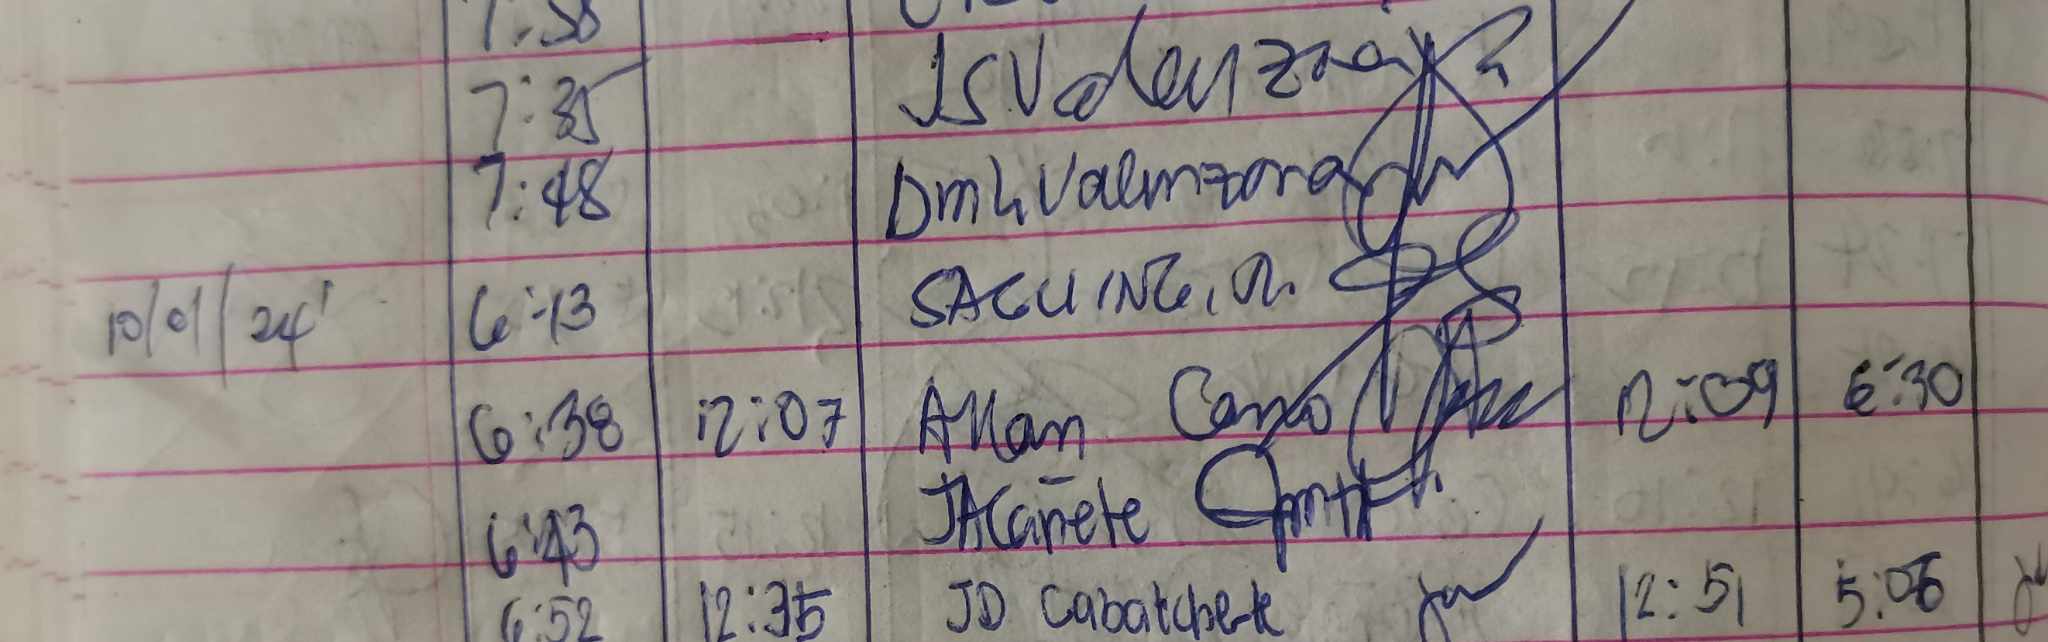 7:38
7:35 JSValenzona
7:48 DmLValenzona
10/01/24' 6:13 SAGUING, R.
6:38 12:07 Allan Cano 12:09 6:30
6:43 JACañete
6:52 12:35 JD Cabatchete 12:51 5:06